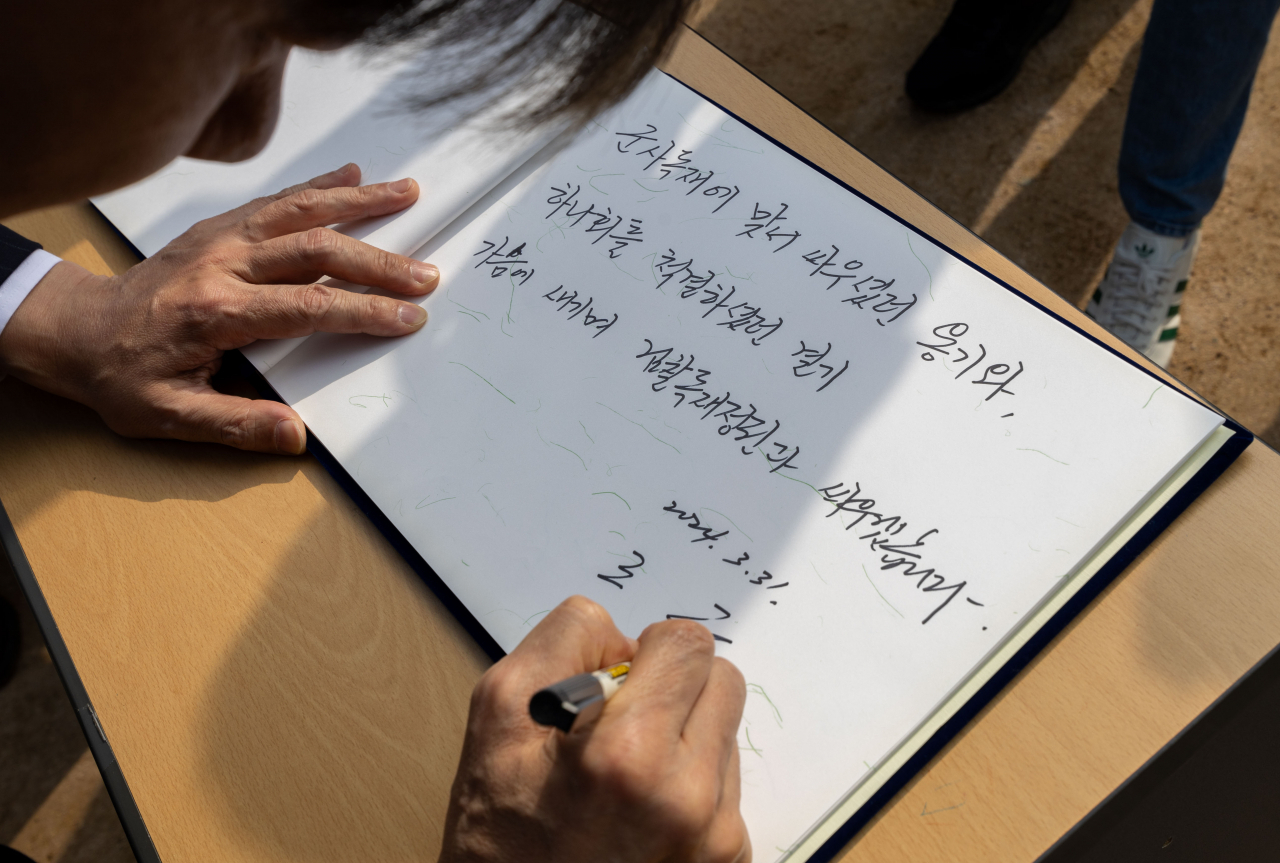 군사독재에 맞서 싸우셨던 용기와,
하나회를 척결하셨던 결기
가슴에 새기며 검찰독재정권과 싸우겠습니다.
2024. 3. 31.
조 국